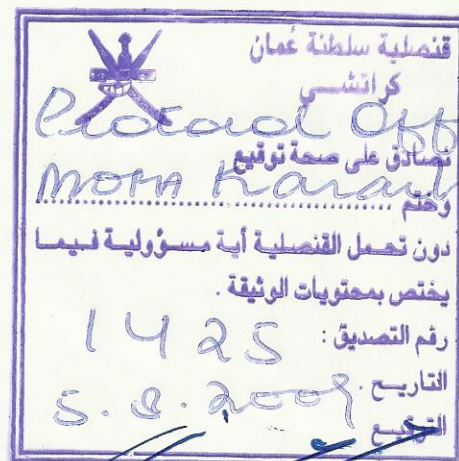 قنصلية سلطنة عُمان
كراتشـــي
Protocol Off
نصادق على صحة توقيع
MOFA Karachi
وختم ........................
دون تحمل القنصلية أية مسـؤولية فـيمـا
يختص بمحتويات الوثيقة .
رقم التصديق :
1425
التاريـخ .
5.8.2009
التوقيع